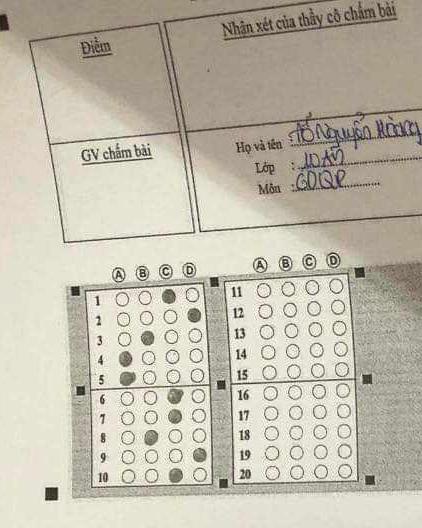 Điểm
Nhận xét của thầy cô chấm bài
GV chấm bài
Họ và tên : Tố Nguyễn Hoàng
Lớp :
Môn : GDQP
Ⓐ Ⓑ Ⓒ Ⓓ
1
2
3
4
5
6
7
8
9
10
Ⓐ Ⓑ Ⓒ Ⓓ
11
12
13
14
15
16
17
18
19
20